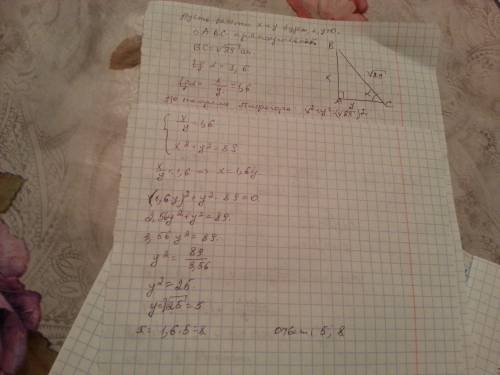 Пусть катеты x и y
△ABC прямоугольный
BC = √89 см
tg α = 1,6
tg α = x/y = 1,6
По теореме Пифагора x²+y²=(√89)²
B
x
√89
α
A
y
C
{ x/y = 1,6
x² + y² = 89
x/y = 1,6 => x = 1,6y
(1,6y)² + y² - 89 = 0
2,56y² + y² = 89.
3,56 y² = 89.
y² = 89/3,56
y² = 25
y = √25 = 5
x = 1,6 · 5 = 8
ответ: 5; 8